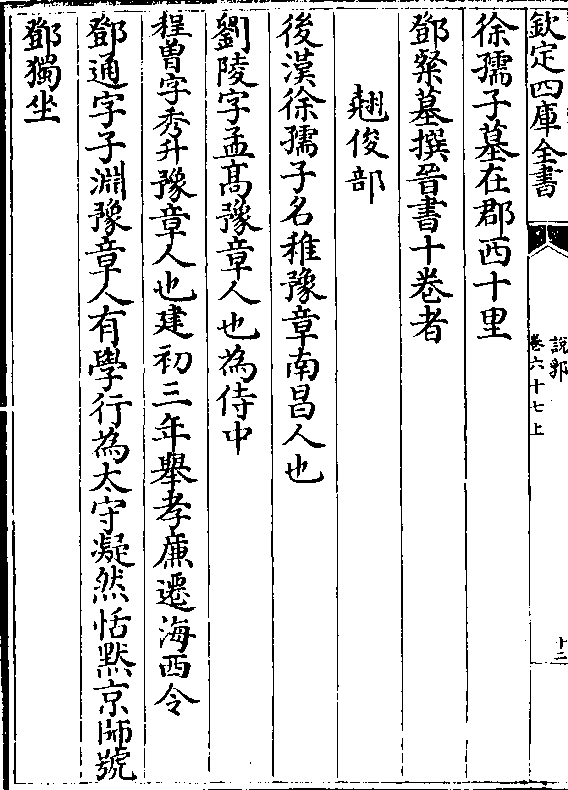 欽定四庫全書
說郛
卷六十七上
十二
徐孺子墓在郡西十里
鄧粲墓撰晉書十卷者
翹俊部
後漢徐孺子名稚豫章南昌人也
劉陵字孟髙豫章人也為侍中
程曽字秀升豫章人也建初三年舉孝廉遷海西令
鄧通字子淵豫章人有學行為太守凝然恬黙京師號
鄧獨坐